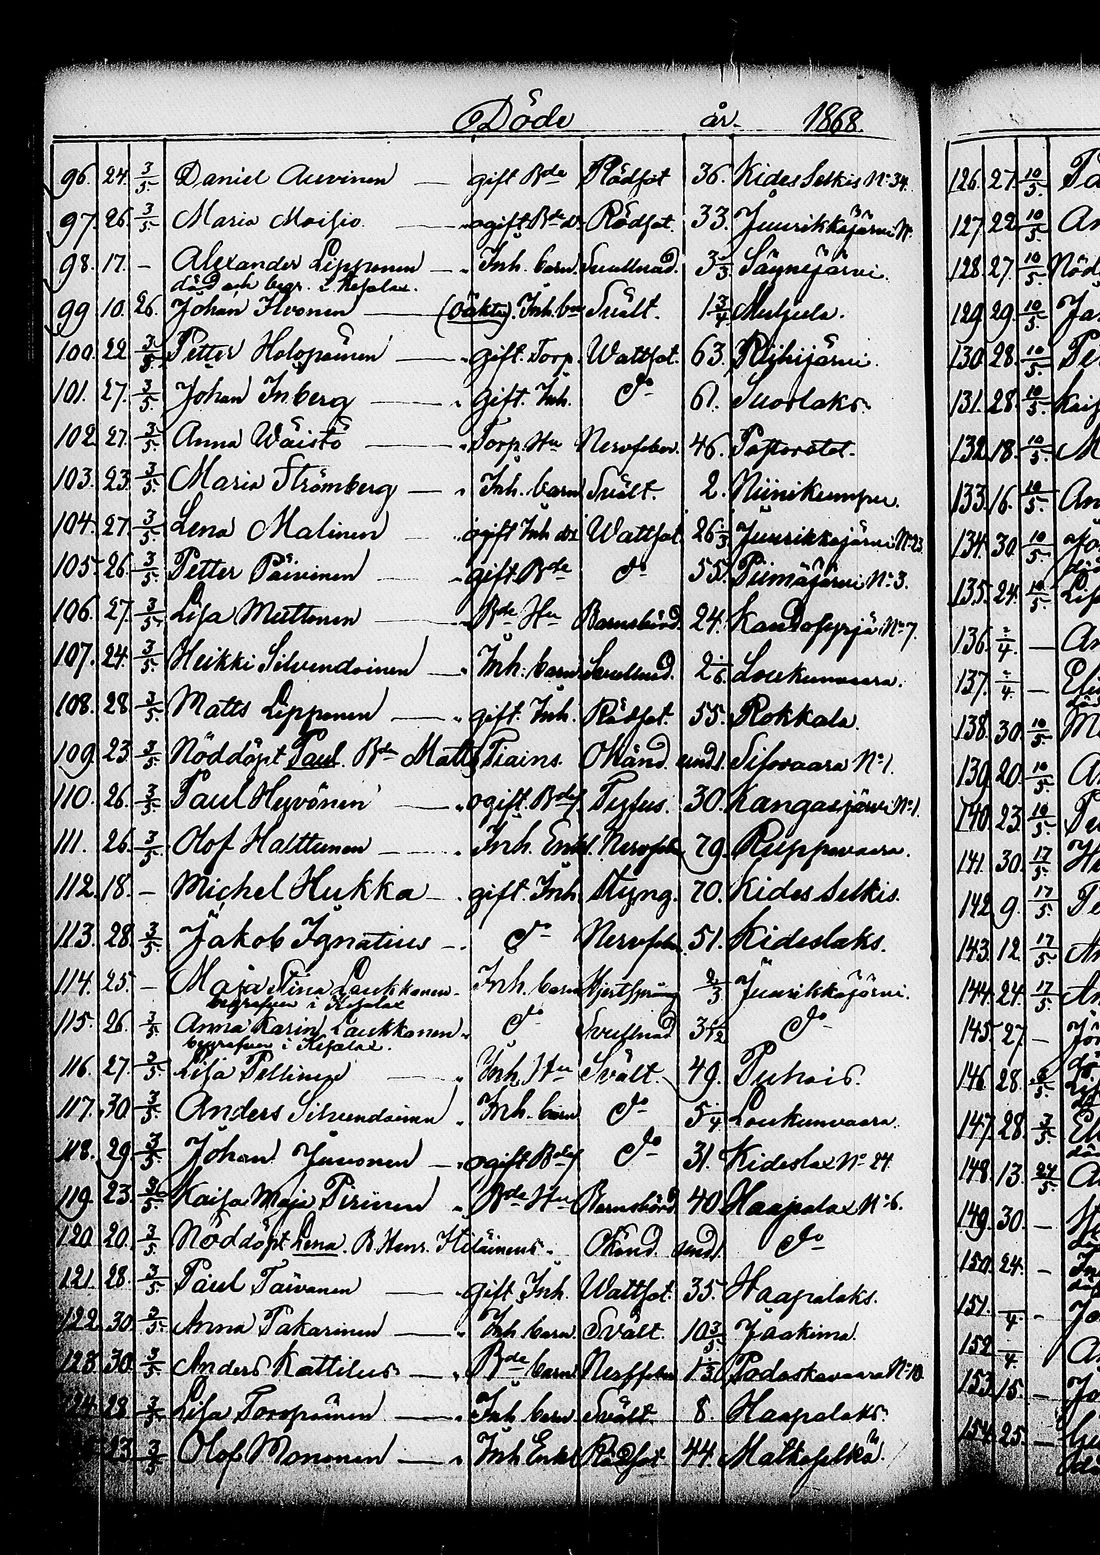 Döde år 1868.
96. 24. 3/5. Daniel Auvinen — gift Bde Rödsot 36. Kides Selkis No 34.
97. 26. 3/5. Maria Moisio — ogift Bde dr Rödsot. 33. Juurikkajärvi No
98. 17. – Alexander Lipponen – Inh. barn. Svullnad. Säynejärvi.
död och begr. i Kesalax.
99. 10. 26. Johan Ihvonen — Inh. Svält. 1 3/4 Muljula.
100. 22. 3/5. Petter Holopainen — gift. Torp. Wattsot. 63. Riihijärvi.
101. 27. 3/5. Johan Inberg — gift. Inh. do 61. Suorlaks.
102. 27. 3/5. Anna Wäistö — Torp. Hu Nervfeber. 46. Papporotot.
103. 23. 3/5. Maria Strömberg — Inh. barn Svält. 2. Niinikumpu.
104. 27. 3/5. Lena Malinen ogift Inh dr Wattsot. 26 Juurikkajärvi No 23.
105. 26. 3/5. Petter Päivinen — gift. Bde do 55. Piimäjärvi No 3.
106. 27. 3/5. Lisa Muttonen — Bde Hu Barnsbörd. 24. No 7.
107. 24. 3/5. Heikki Silvendoinen – Inh. barn Svullnad. Loukunvaara.
108. 28. 3/5. Matts Lipponen — gift. Inh. Rödsot. 55. Rokkala.
109. 23. 3/5. Nöddöpt Paul. Bde Matts Tiains. Okänd. Sisovaara No 1.
110. 26. 3/5. Paul Heyvönen — ogift. Bdes Tyfus. 30. Kangasjärvi No 1.
111. 26. 3/5. Olof Halttunen — Inh. Enkl. Nervfeb. 79. Ruppovaara.
112. 18. – Michel Hukka — gift. Inh. Styng. 70. Kides Selkis.
113. 28. 3/5. Jakob Ignatius – do Nervfeb. 51. Kideslaks.
114. 25. – Maja Stina Laukkanen. Inh. barn Hjertsprång 2/3 Juurikkajärvi.
begrafven i Kesalax
115. 26. 3/5. Anna Karin Laukkanen. do Svullnad do
begrafven i Kesalax.
116. 27. 3/5. Lisa Pellinen — Inh Hu Svält. 49. Puhois.
117. 30. 3/5. Anders Silvendoinen Inh. barn do 5 1/4 Loukunvaara.
118. 29. 3/5. Johan Juvonen — ogift Bdes do 31. Kideslax No 24.
119. 23. 3/5. Kaisa Maja Pirinen Bde Hu Barnsbörd. 40 Haapalax No 6.
120. 20. 3/5. Nöddöpt Lena. B. Henr. Okänd do
121. 28. 3/5. Paul Taivanen gift. Inh. Wattsot. 35. Haapalaks.
122. 30. 3/5. Anna Pakarinen — Inh. barn. Svält. 10 3/5 Jaakima.
123. 30. 3/5. Anders Kattilus — Bde barn Nerffeber Potoskavaara No 10.
124. 28. 3/5. Lisa Toropainen — Inh. barn Svält. 8. Haapalaks.
23. 3/5. Olof Mononen — Inh. Enkl Rödsot 44. Matkaselkä.
126. 27. 10/5.
127. 22. 10/5. An
128. 27. 10/5. Nöd
129. 29. 10/5. Ja
130. 28. 10/5. Pe
131. 28. 10/5. Kais
132. 18. 10/5. M
133. 16. 10/5. An
134. 30. 10/5. Jo
135. 24. 10/5. Lis
136. – An
137. –
138. 30. 10/5. M
139. 20. 10/5. A
140. 23. 10/5. Pe
141. 30. 17/5. He
142. 9. 17/5. Pe
143. 12. 17/5. An
144. 24. 17/5. An
145. 27. – Jo
146. 28.
147. 28. 3/5. El
148. 13. 24/5. A
149. 30. –
150. 24. –
151. – Jo
152. A
153. 15. – Jo
154. 25. –